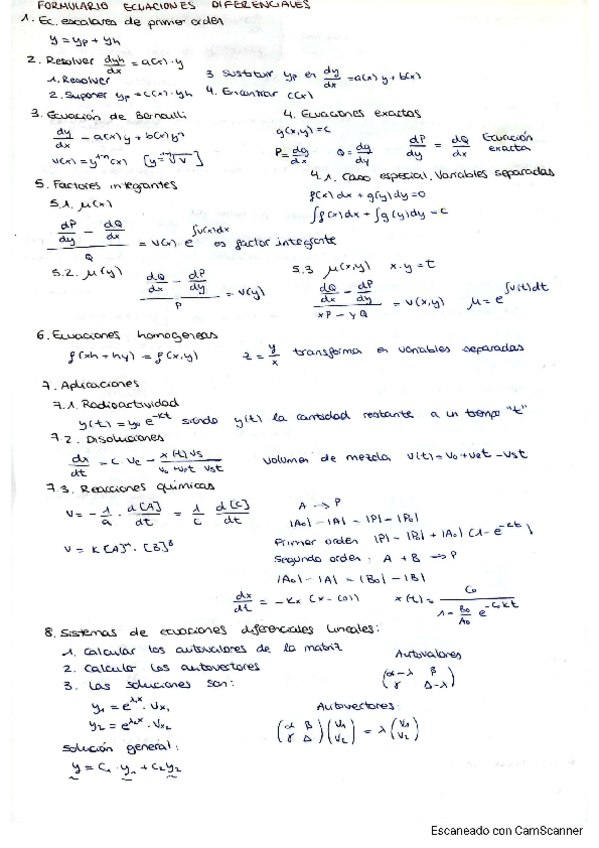 FORMULARIO ECUACIONES DIFERENCIALES
1. Ec. escalares de primer orden
y = yp + yh
2. Resolver dyh/dx = a(x)·y
1. Resolver
2. Suponer yp = c(x)·yh
3 Sustituir yp en dy/dx = a(x)y + b(x)
4. Encontrar c(x)
3. Ecuación de Bernoulli
dy/dx - a(x)y + b(x)yⁿ
v(x) = y¹⁻ⁿ(x)
4. Ecuaciones exactas
g(x,y) = c
P = dg/dx Q = dg/dy dP/dy = dQ/dx Ecuación exacta
4.1. Caso especial. Variables separadas
f(x)dx + g(y)dy = 0
∫f(x)dx + ∫g(y)dy = c
5. Factores integrantes
5.1. μ(x)
(dP/dy - dQ/dx)/Q = v(x) e^∫v(x)dx es factor integrante
5.2. μ(y)
(dQ/dx - dP/dy)/P = v(y)
5.3 μ(x,y) x·y = t
(dQ/dx - dP/dy)/(xP - yQ) = v(x,y) μ = e^∫v(t)dt
6. Ecuaciones homogeneas
f(xh + hy) = f(x,y) z = y/x transforma en variables separadas
7. Aplicaciones
7.1. Radioactividad
y(t) = y₀ e^-kt siendo y(t) la cantidad restante a un tiempo "t"
7.2. Disoluciones
dx/dt = c·ve - x(t)vs/(v₀ + vet vst) volumen de mezcla v(t) = v₀ + vet - vst
7.3. Reacciones químicas
v = - 1/a · d[A]/dt = 1/c d[C]/dt
v = K[A]^α·[B]^β
A → P
|A₀| - |A| = |P| - |P₀|
Primer orden |P| - |P₀| + |A₀| (1 - e^-kt)
Segundo orden: A + B → P
|A₀| - |A| = |B₀| - |B|
dx/dt = -Kx (x - C₀) x(t) = C₀/(1 - B₀/A₀ e^-C₀kt)
8. Sistemas de ecuaciones diferenciales lineales:
1. Calcular los autovalores de la matriz
2. Calcular los autovectores
3. Las soluciones son:
y₁ = e^λ₁x · Vx₁
y₂ = e^λ₂x · Vx₂
Solución general:
y = C₁·y₁ + C₂y₂
Autovalores
(α-λ β
γ Δ-λ)
Autovectores:
(α β
γ Δ) (V₁
V₂) = λ (V₁
V₂)
Escaneado con CamScanner